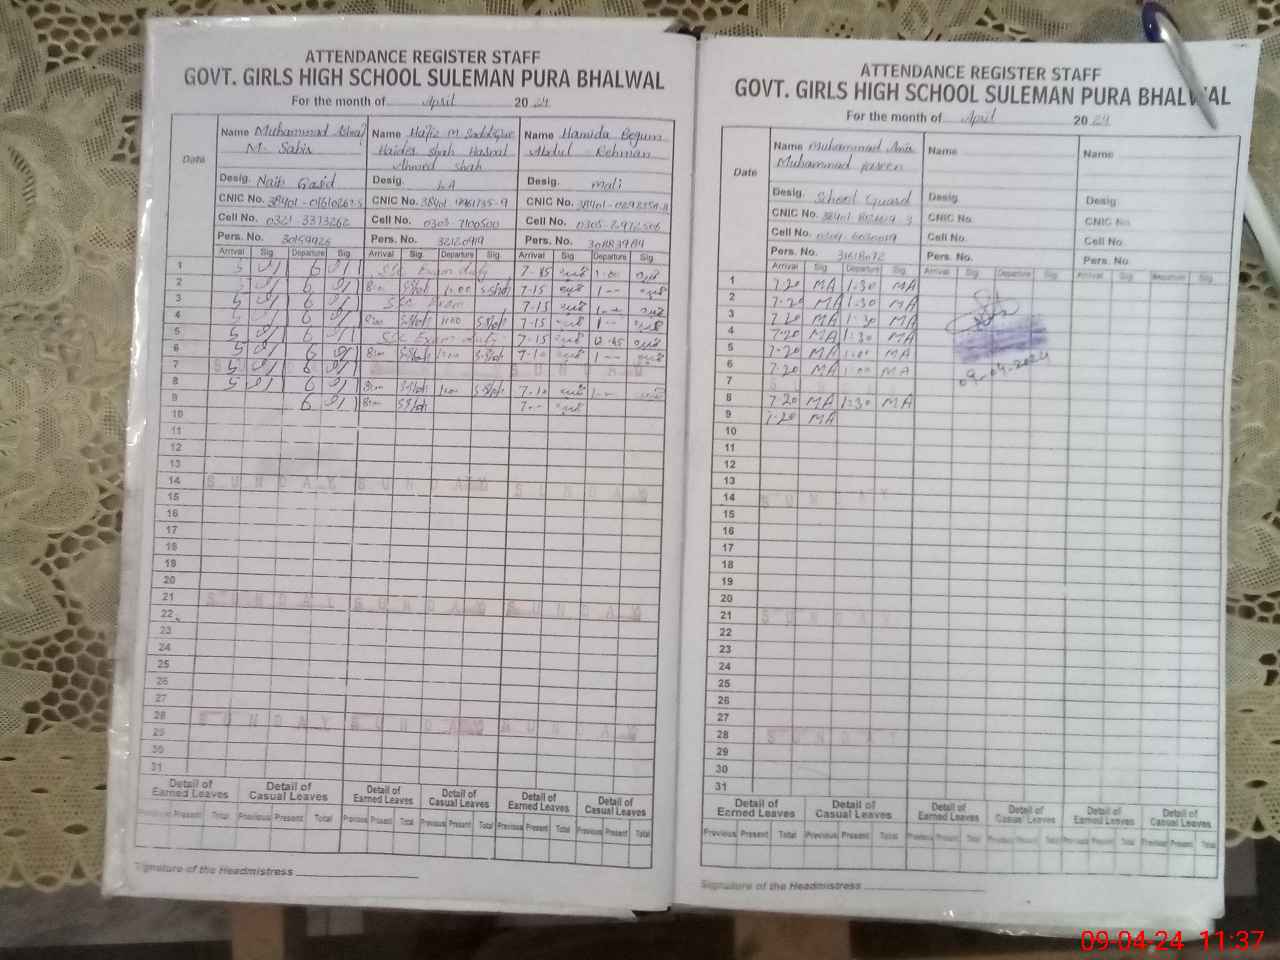 ATTENDANCE REGISTER STAFF
GOVT. GIRLS HIGH SCHOOL SULEMAN PURA BHALWAL
For the month of April 2024
Date
Name Muhammad
M. Sabir
Desig. Naib Qasid
CNIC No. 38401-
Cell No. 0321-3373262
Pers. No. 30159926
Name Hafiz M Saddique
Haider Shah Hasnat
Ahmed Shah
Desig. LA
CNIC No. 38401-
Cell No. 0303-7100500
Pers. No. 32120919
Name Hamida Begum
Abdul Rehman
Desig. Mali
CNIC No. 38401-
Cell No. 0305-2972506
Pers. No. 30883984
Arrival Sig. Departure Sig. Arrival Sig. Departure Sig. Arrival Sig. Departure Sig.
1 5 6 SSC Exam duty 7-15 1-00
2 5 6 8:00 1:00 7-15 1--
3 5 6 SSC Exam 7-15
4 5 6 8:00 1:00 7-15 1--
5 5 6 SSC Exam duty 7-15 12-45
6 5 6 8:00 7-10 1--
7 5 6 SUNDAY
8 5 6 8:00 1:00 7-10
9 6 8:00 7--
10
11
12
13
14 SUNDAY SUNDAY SUNDAY
15
16
17
18
19
20
21 SUNDAY SUNDAY SUNDAY
22
23
24
25
26
27
28 SUNDAY SUNDAY SUNDAY
29
30
31
Detail of Earned Leaves Detail of Casual Leaves Detail of Earned Leaves Detail of Casual Leaves Detail of Earned Leaves Detail of Casual Leaves
Previous Present Total Previous Present Total Previous Present Total Previous Present Total Previous Present Total Previous Present Total
Signature of the Headmistress
ATTENDANCE REGISTER STAFF
GOVT. GIRLS HIGH SCHOOL SULEMAN PURA BHALWAL
For the month of April 2024
Date
Name Muhammad
Muhammad
Desig. School Guard
CNIC No. 38401
Cell No.
Pers. No. 31618072
Name
Desig.
CNIC No.
Cell No.
Pers. No.
Name
Desig.
CNIC No.
Cell No.
Pers. No.
Arrival Sig. Departure Sig. Arrival Sig. Departure Sig. Arrival Sig. Departure Sig.
1 7-20 MA 1:30 MA
2 7-20 MA 1:30 MA
3 7-20 MA 1:30 MA
4 7-20 MA 1:30 MA
5 7-20 MA 1:00 MA
6 7-20 MA 1:00 MA
09-04-2024
7
8 7-20 MA 1:30 MA
9 7-20 MA
10
11
12
13
14 SUNDAY
15
16
17
18
19
20
21 SUNDAY
22
23
24
25
26
27
28 SUNDAY
29
30
31
Detail of Earned Leaves Detail of Casual Leaves Detail of Earned Leaves Detail of Casual Leaves Detail of Earned Leaves Detail of Casual Leaves
Previous Present Total Previous Present Total Previous Present Total Previous Present Total Previous Present Total Previous Present Total
Signature of the Headmistress
09-04-24 11:37